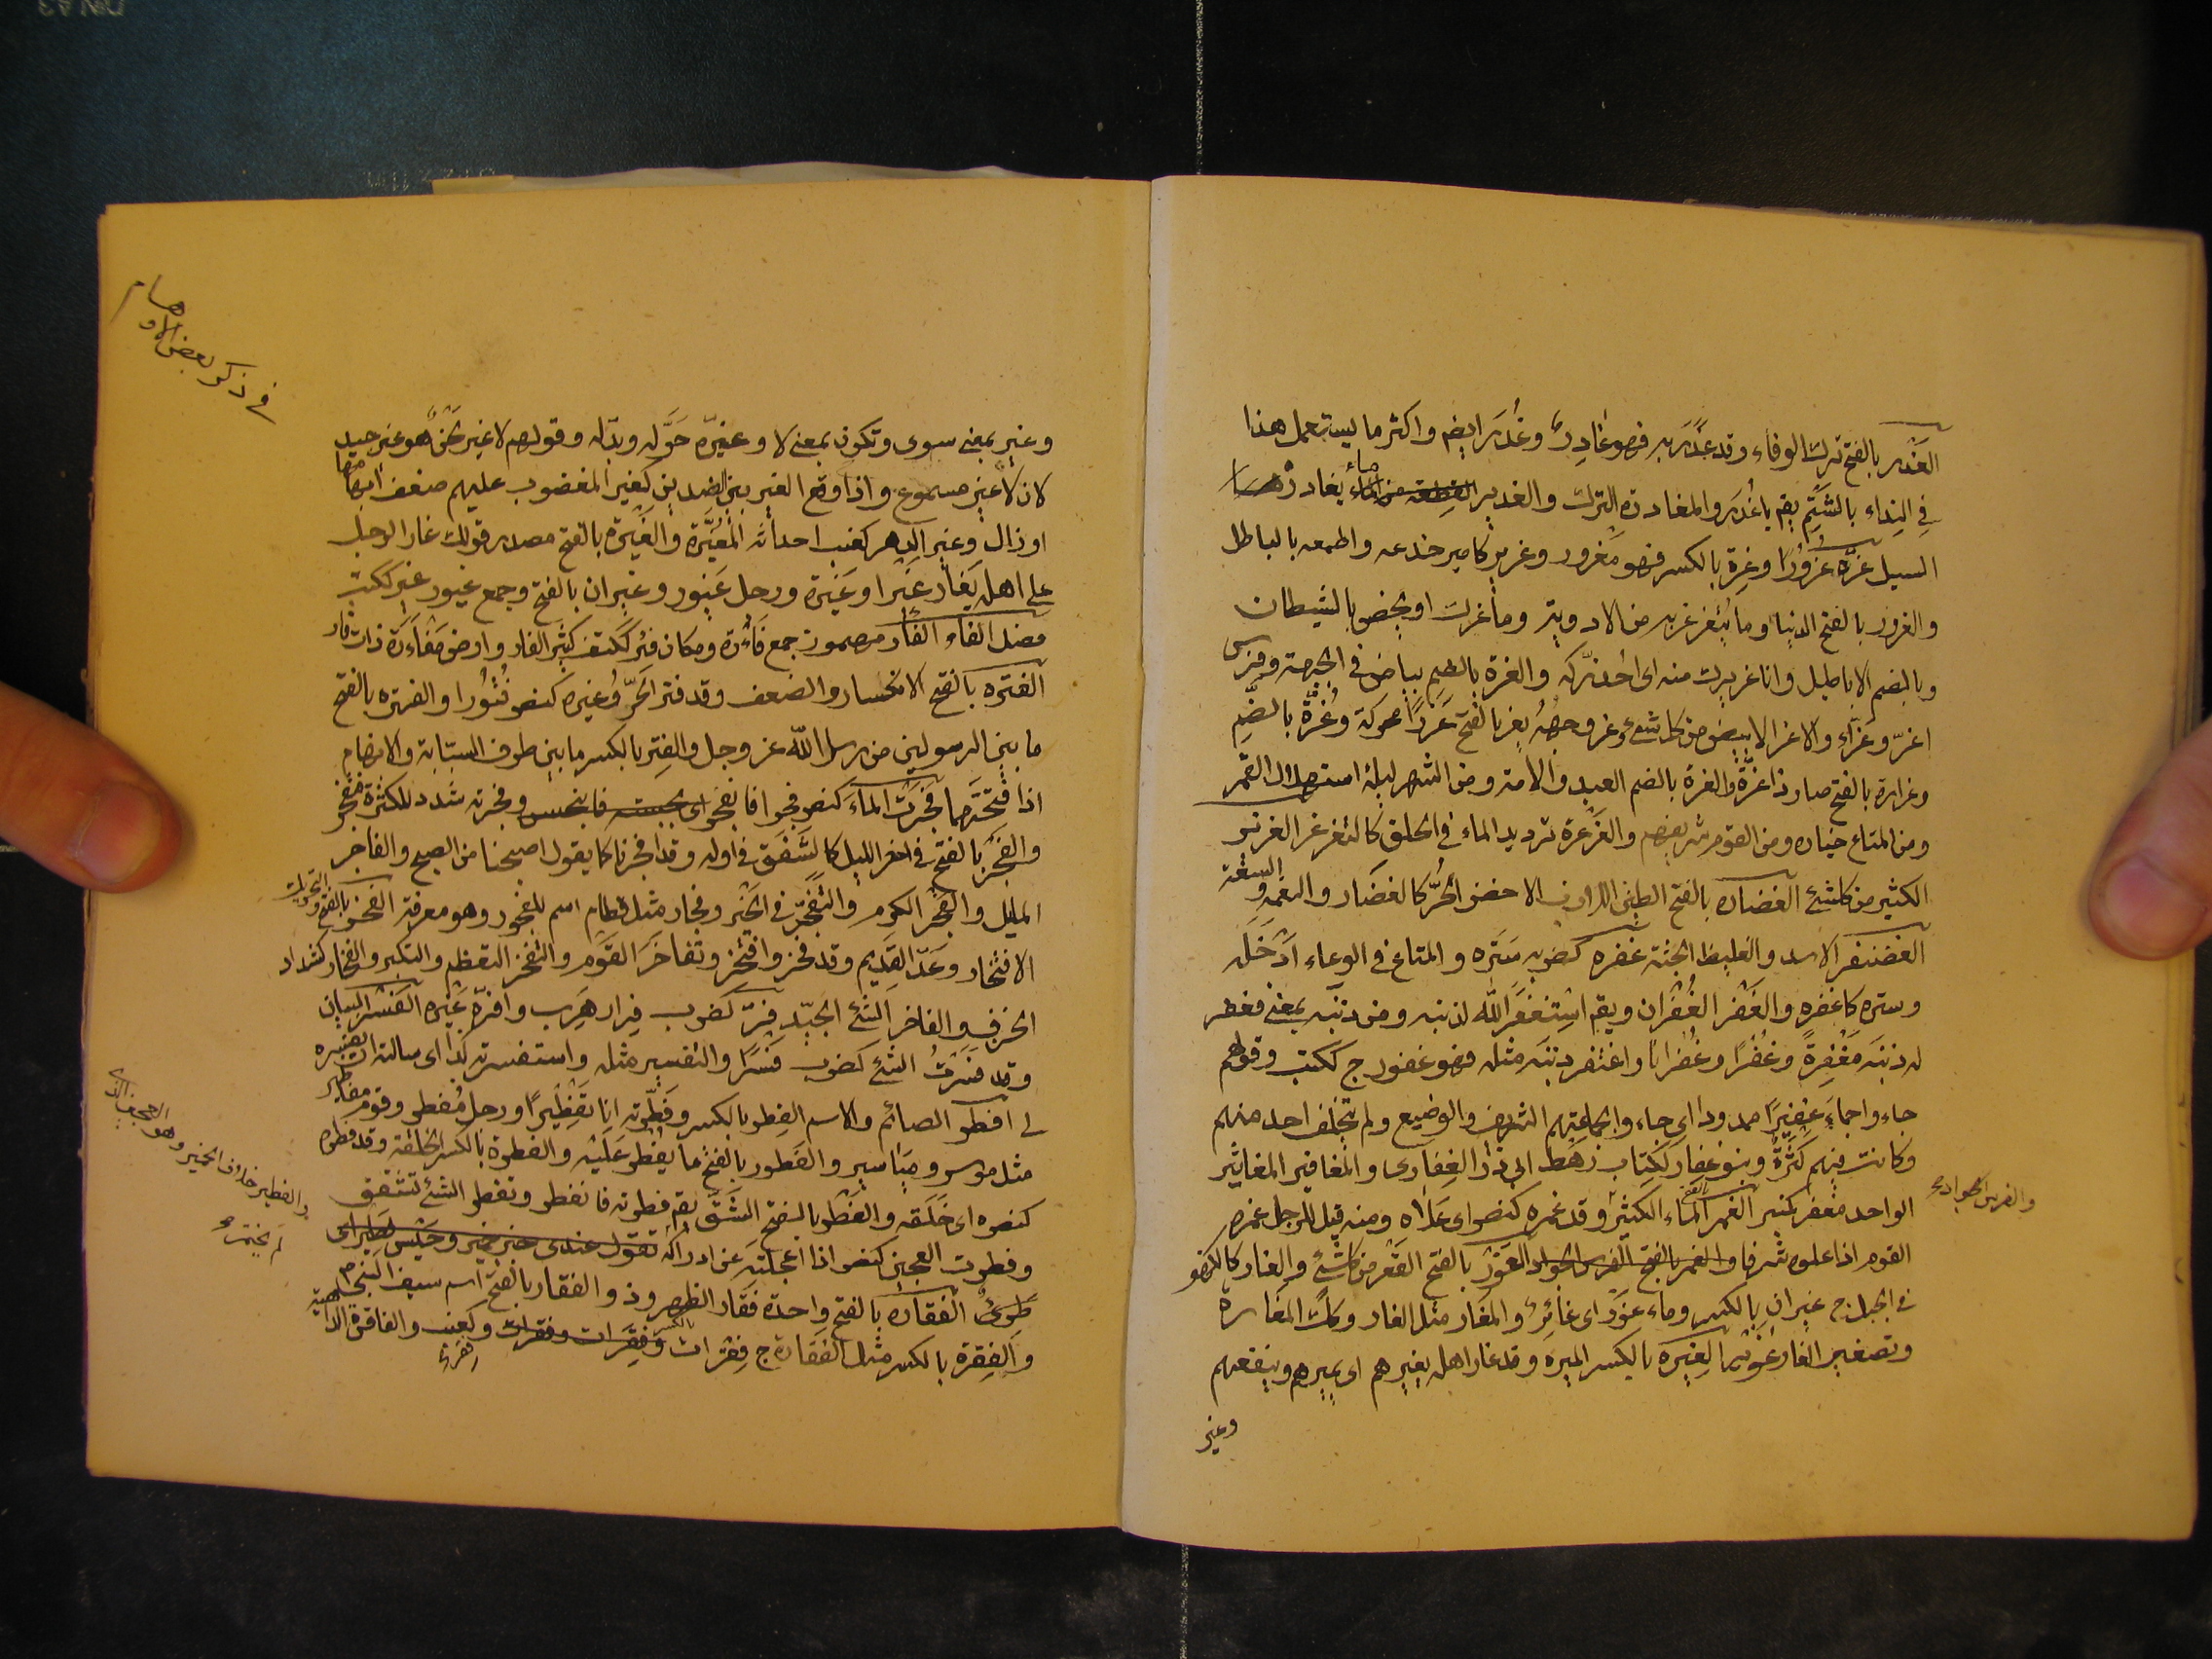 الغدر بالفتح ترك الوفاء وقد غدر به فهو غادِرٌ وغُدَر ايضم واكثر ما يستعمل هذا
في النداء بالشتم يقم يا غُدَر والمغادرة الترك والغدير القطعة من الماء يغادرها
السيل غرّه غرورًا وغِرة بالكسر فهو مغرور وغرير كامير خدعه واطمعه بالباطل
والغرور بالفتح الدنيا وما يتغرغر به من الادوية وما غرك او يخص بالشيطان
وبالضم الاباطيل وانا غريرك منه اى احذركه والغرة بالضم بياض في الجبهة وفرس
اغرّ وغرّاء والاغر الابيض من كل شئ وغر وجهه يغر بالفتح غررًا محركة وغُرّة بالضم
وغرارة بالفتح صار ذا غرّة والغرة بالضم العبد والامة ومن الشهر ليلة استهلال القمر
ومن المتاع خياره ومن القوم شريفهم والغرغرة ترديد الماء في الحلق كالتغرغر الغزير
الكثير من كل شئ الغضاره بالفتح الطين اللازب الاخضر الحُرّ كالغضار والنعمة والسعة
الغضنفر الاسد والغليظ الجثة غفره كضربه سَتَره والمتاع في الوعاء ادخَلَه
وستره كاغفره والغَفْر الغُفْران ويقم استغفر الله لذنبه ومن ذنبه بمعنى فغفر
له ذنبه مَغْفِرةً وغَفْرًا وغُفرانًا واغتفر ذنبَه مثله فهو غفور ج ككتب وقولهم
جاءوا جمّاءَ غفيرًا ممدودا اى جاءوا بجماعتهم الشريف والوضيع ولم يتخلف احد منهم
وكانت فيهم كَثْرَةٌ وبنو غفار ككِتاب رهط ابى ذرّ الغِفارى والمغافير المغاثير
الواحد مغفر كمنبر الغمر بالفتح الماء الكثير وقد غمره كنصر اى عَلاه ومنه قيل للرجل غمره
القوم اذا علوه شرفا والغمر بالفتح الفرس الجواد الغَوْر بالفتح القَعْر من كل شئ والغار كالكهف
في الجبل ج غيران بالكسر وماء غَوْر اى غائِرٌ والمغار مثل الغار وكذلك المَغارة
وتصغير الغار غُوَير الغِيَرة بالكسر الميرة وقد غار اهله يغيرهم اى يميرهم وينفعهم
وغير
والفرس الجواد
في ذكر بعض الاوهام
وغير بمعنى سوى وتكون بمعنى لا وغيّره حَوَّله وبدّله وقولهم لا غير لحنٌ هو غير جيد
لان لا غير مسموع واذا وقع الغير بين الضدين كغير المغضوب عليهم ضعف ابهامها
او زال وغير الدهر كعنب احداثه المُغيَّرة والغَيْرة بالفتح مصدر قولك غار الرجل
على اهله يَغار غَيْرا وغَيْرة ورجل غيور وغيران بالفتح وجمع غيور غير ككتب
فصل الفاء الفأر مهموز جمع فأرة ومكان فئر ككتف كثير الفار وارض مفأرة ذات فار
الفتره بالفتح الانكسار والضعف وقد فتر الحَرّ وغيره كنصر فُتُورا والفترة بالفتح
ما بين الرسولين من رسل الله عز وجل والفِتر بالكسر ما بين طرف السبابة والابهام
اذا فتحتهما فَجَرْتُ الماء كنصر فجرا فانفجر اى بجسته فانبجس وفجرته شدد للكثرة فتفجر
والفَجْر بالفتح في اخر الليل كالشَّفَق في اوله وقد افجرنا كما يقول اصبحنا من الصبح والفاجر
المايل والفَجَر الكرم والتفجّر في الخير وفجار مثل قطام اسم للفجور وهو معرفة الفخر بالفتح والتحريك
الافتخار وعَدّ القديم وقد فخر وافتخر وتفاخَرَ القوم والتفخر التعظم والتكبر والفخار كشداد
الخزف والفاخر الشئ الجيّد فِرّ كضرب فِرار هَرَب وافرّه غيره الفَسْر البيان
وقد فَسَرْتُ الشئ كضرب فَسْرًا والتفسير مثله واستفسرته كذا اى سالته ان يفسره
لى افطر الصائم والاسم الفِطر بالكسر وفطّرته انا تفطيرًا ورجل مُفطر وقوم مفاطير
مثل موسر ومياسير والفَطور بالفتح ما يُفْطر عليه والفطرة بالكسر الخلقة وقد فطره
كنصره اى خَلَقه والفَطْر بالفتح الشَّقّ يقم فطرته فانفطر وتفطر الشئ تشقق
وفطرت العجين كنصر اذا اعجلته عن ادراكه تقول عندى خبز خمير وحَيْس فَطِير اى
طَرِىّ الفقاره بالفتح واحدة فَقار الظهر وذو الفقار بالفتح اسم سيف النبى
والفِقرة بالكسر مثل الفقارة ج فِقْرات وفِقِرات وفقرات وكعنب والفاقرة الداهية
والفطير خلاف الخمير وهو العجين الذى
لم يختمر